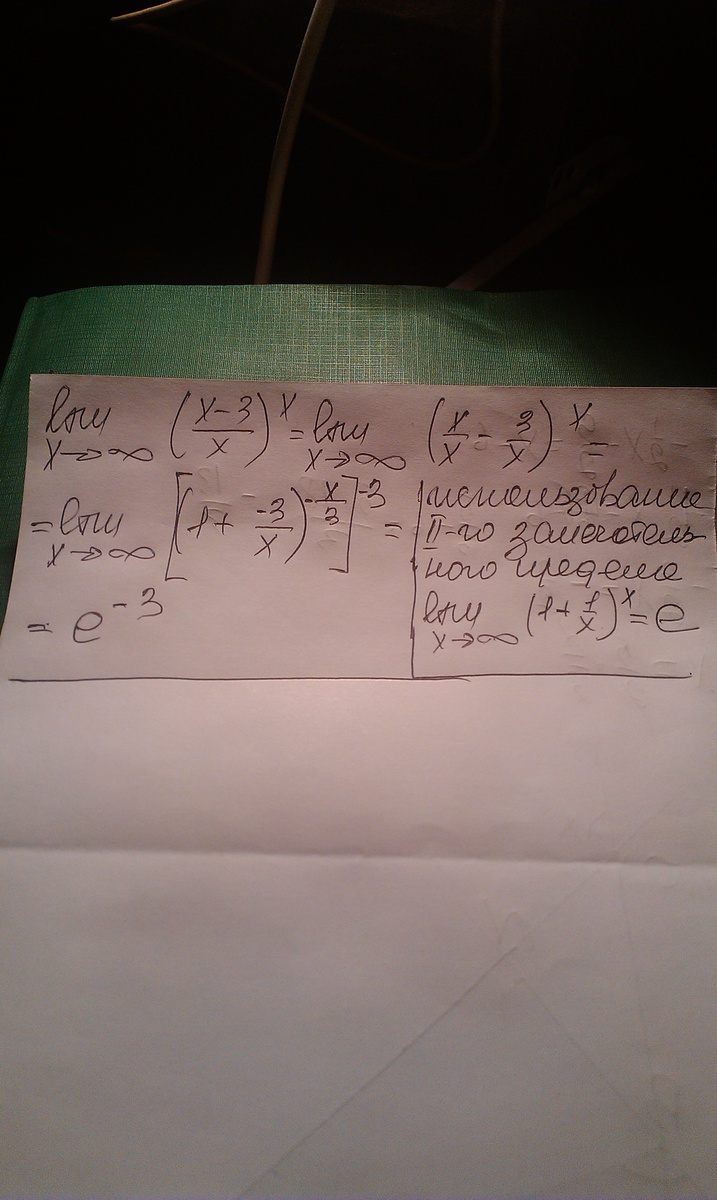 lim x→∞ ((x-3)/x)^x = lim x→∞ (x/x - 3/x)^x =
= lim x→∞ [(1 + -3/x)^(-x/3)]^-3 =
= e^-3
использование
II-го замечатель
ного предела
lim x→∞ (1 + 1/x)^x = e